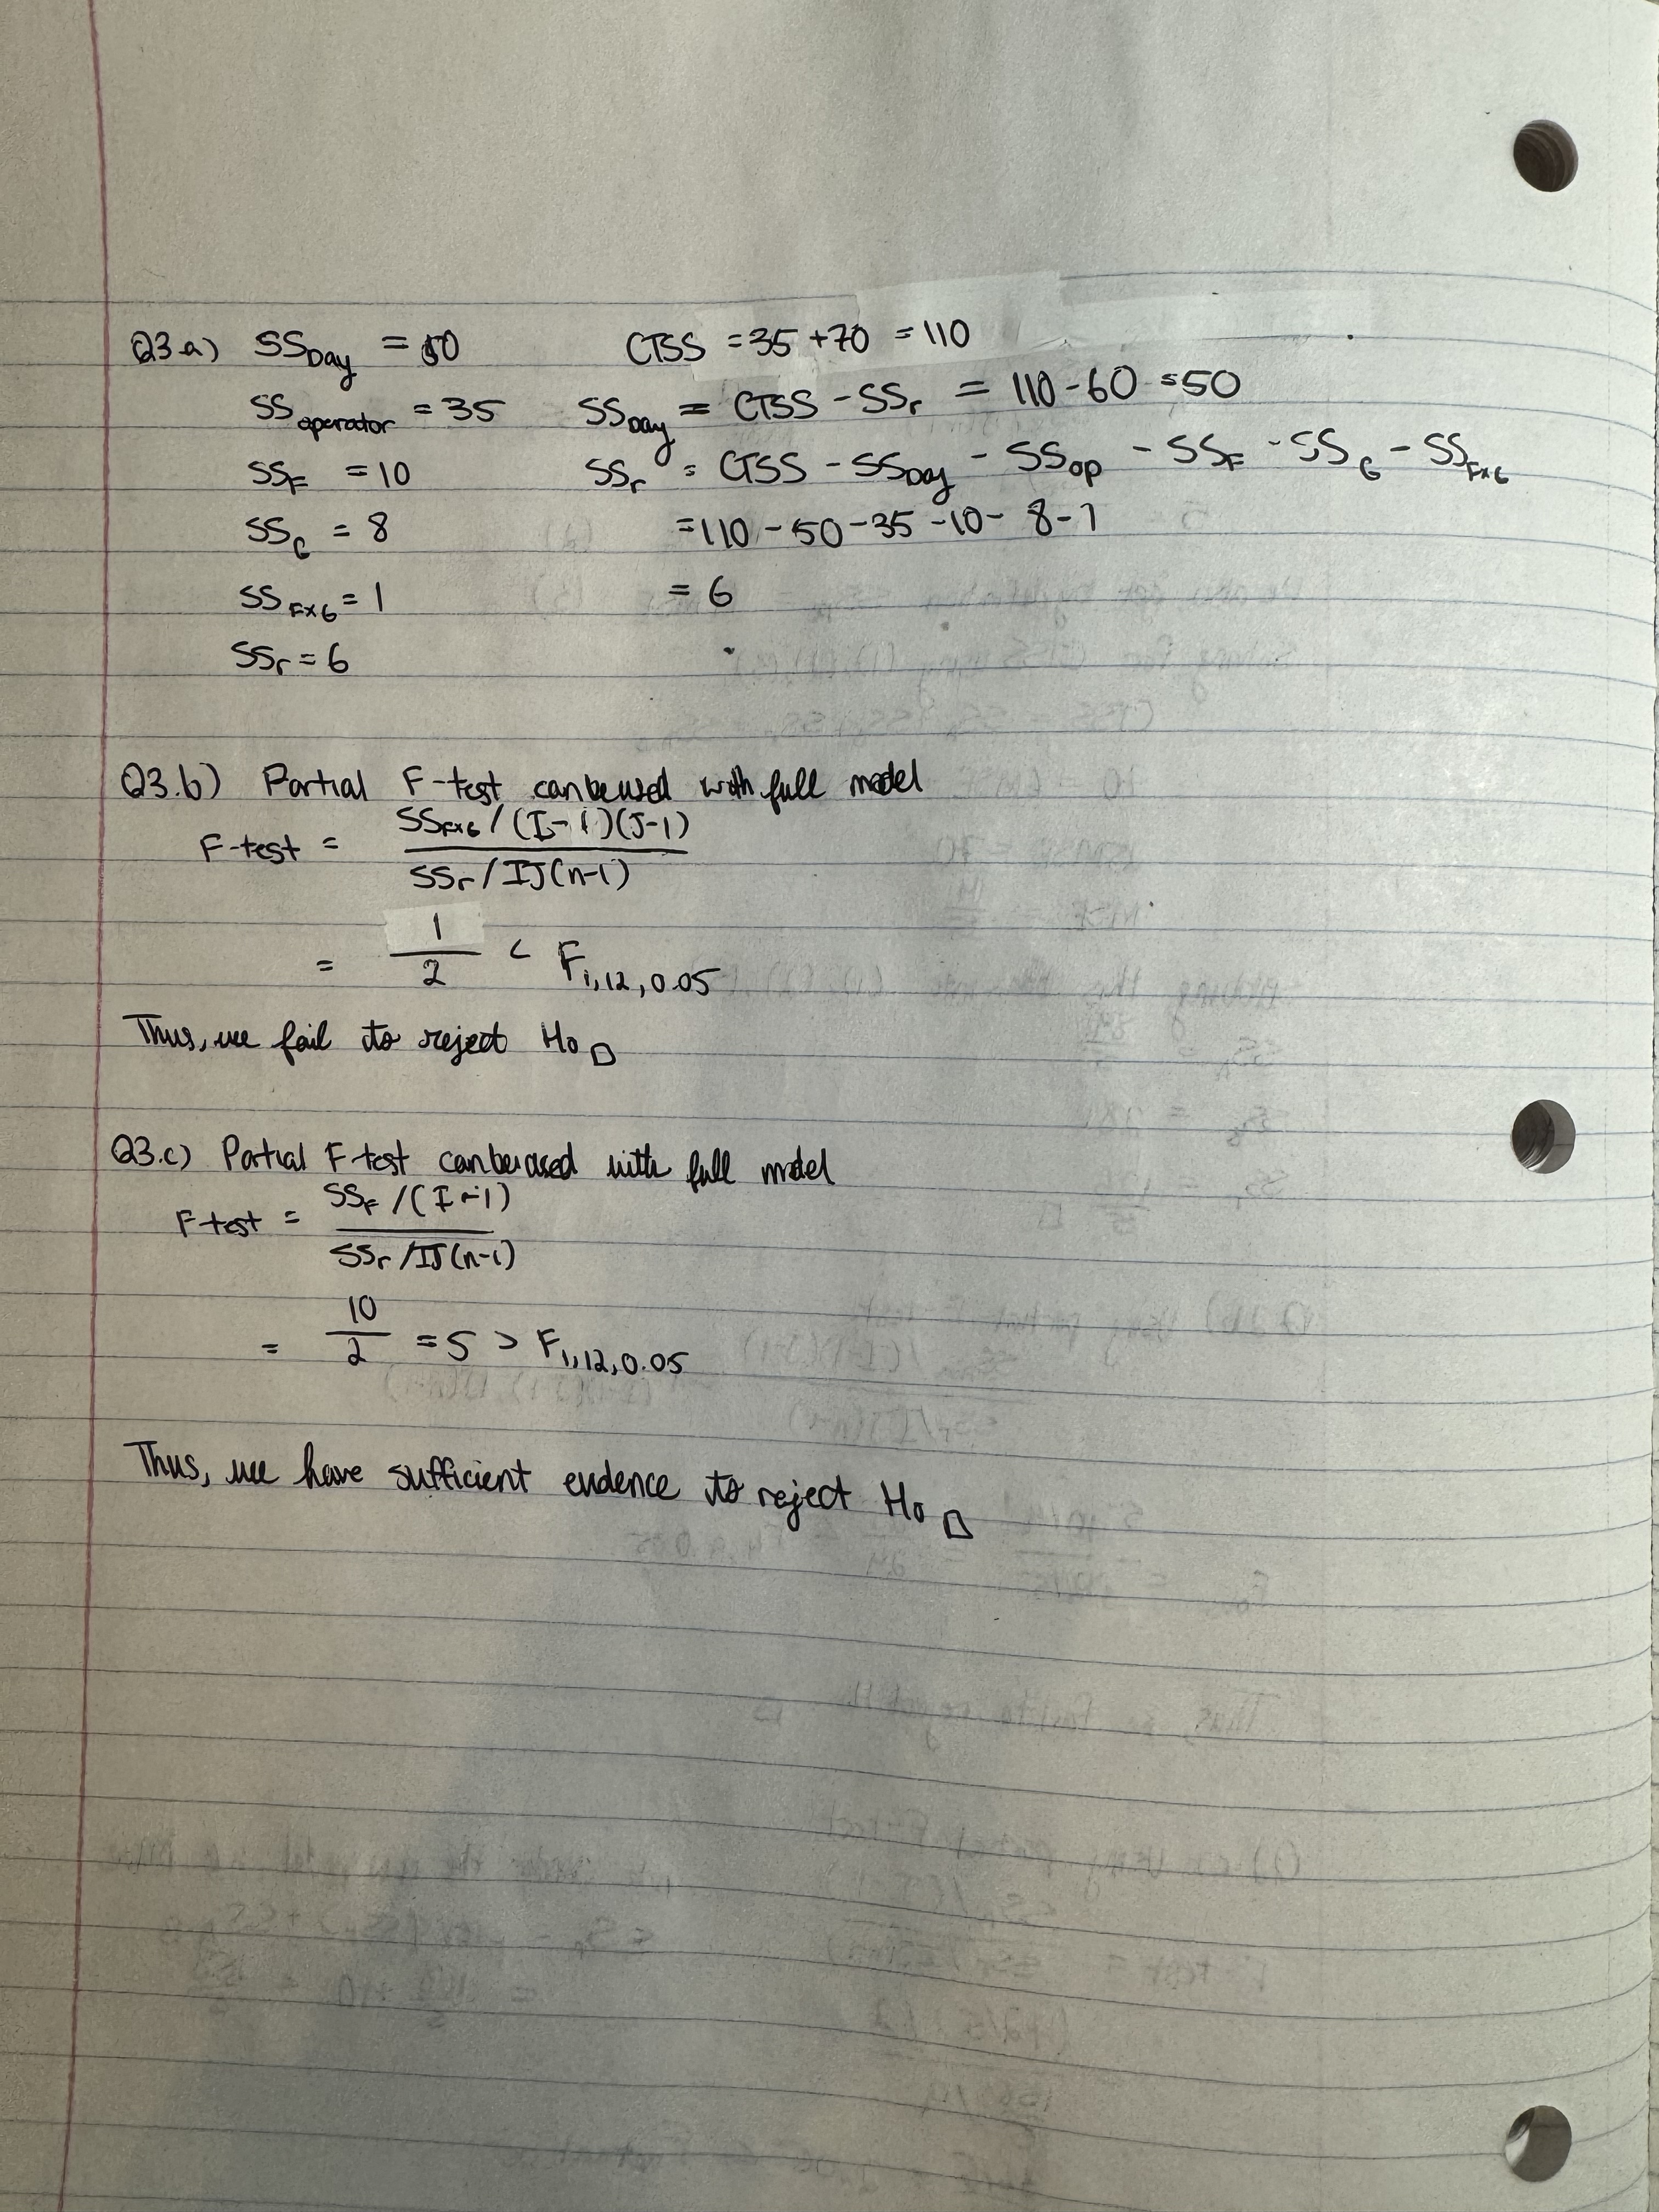 Q3.a) SS_Day = 50 CTSS = 35 + 70 = 110
SS_operator = 35 SS_Day = CTSS - SS_r = 110 - 60 = 50
SS_F = 10 SS_r = CTSS - SS_Day - SS_op - SS_F - SS_G - SS_FxG
SS_G = 8 = 110 - 50 - 35 - 10 - 8 - 1
SS_FxG = 1 = 6
SS_r = 6
Q3.b) Partial F-test can be used with full model
F-test = SS_FxG / (I-1)(J-1)
SS_r / IJ(n-1)
= 1/2 < F_1,12,0.05
Thus, we fail to reject H0 □
Q3.c) Partial F-test can be used with full model
F-test = SS_F / (I-1)
SS_r / IJ(n-1)
= 10/2 = 5 > F_1,12,0.05
Thus, we have sufficient evidence to reject H0 □